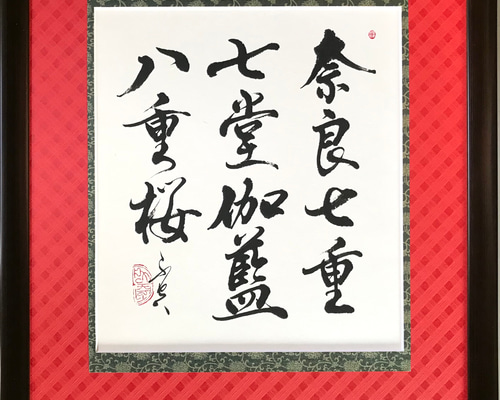 奈良七重
七堂伽藍
八重桜